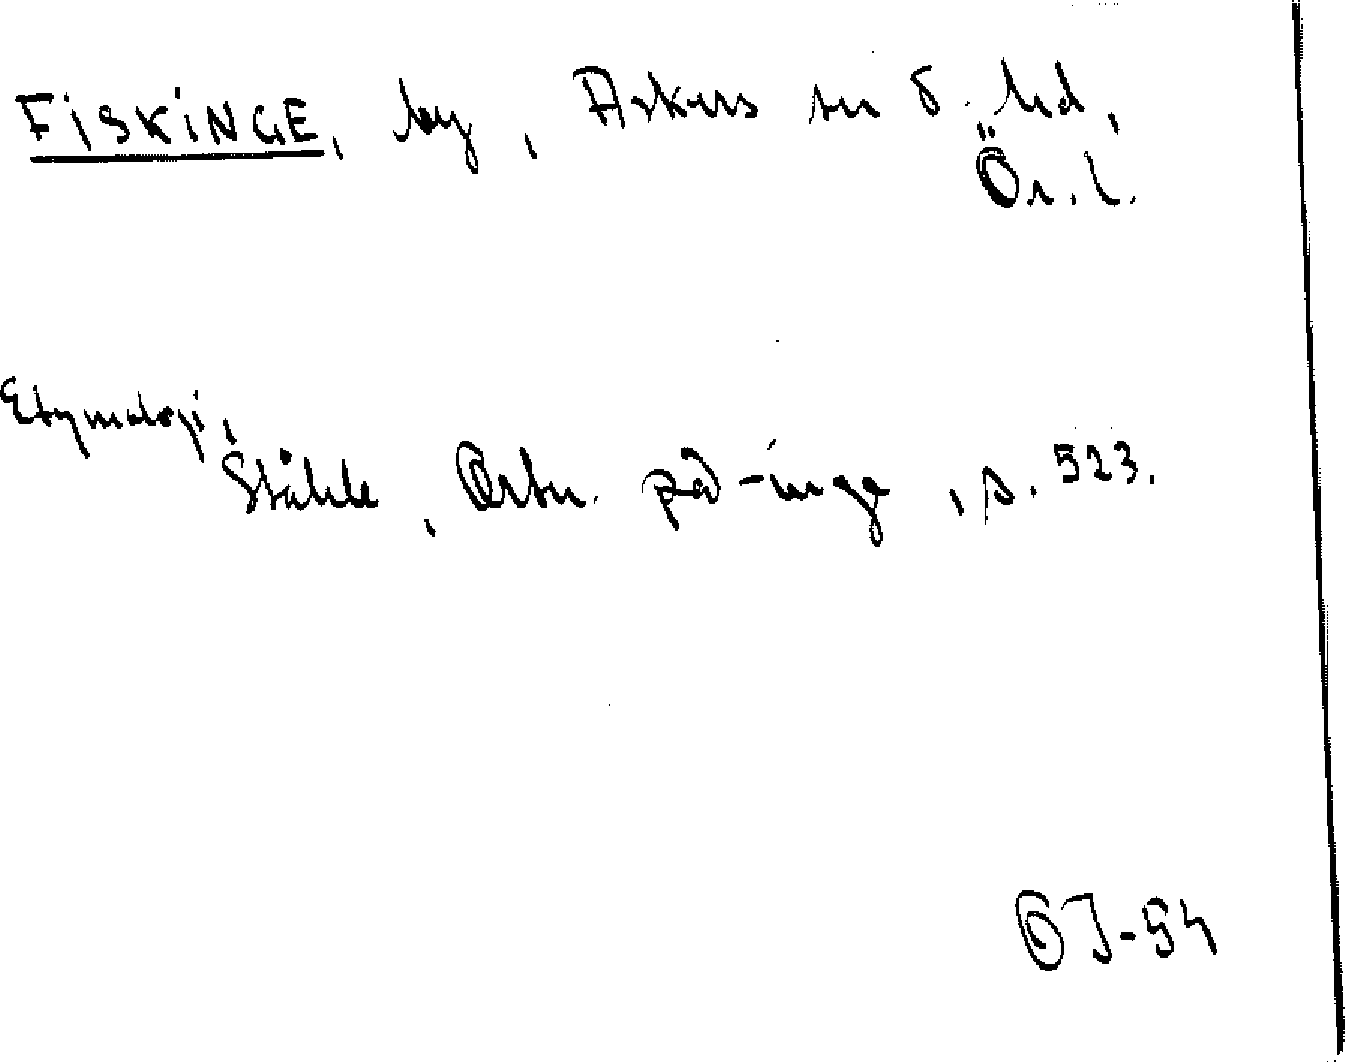 FISKINGE, by, Askers sn o. hd,
Ör. l.
Etymologi,
Ståhle, Ortn. på -inge, s. 523.
OJ-54